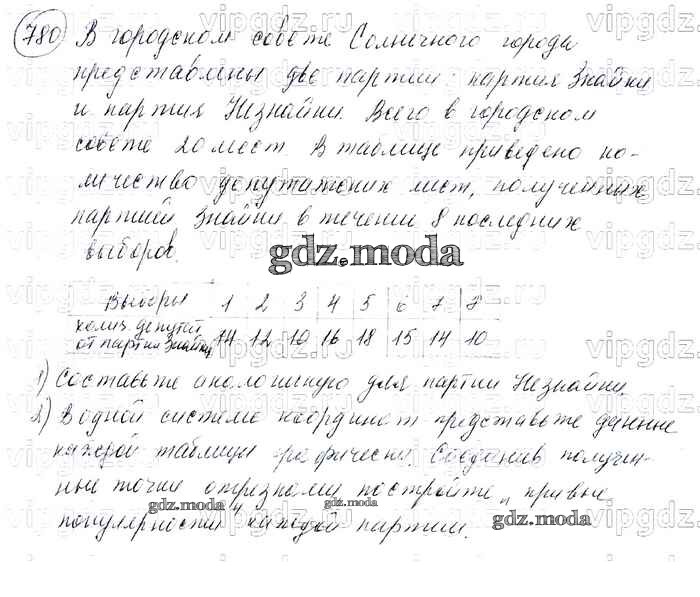 780 В городском совете Солнечного города
представлены две партии: партия Знайки
и партия Незнайки. Всего в городском
совете 20 мест. В таблице приведено ко-
личество депутатских мест, полученных
партией Знайки в течении 8 последних
выборов.
gdz.moda
Выборы 1 2 3 4 5 6 7 8
колич. депутат. от партии Знайки 14 12 10 16 18 15 14 10
1) Составьте аналогичную для партии Незнайки.
2) В одной системе координат представьте данные
каждой таблицы графически. Соединив получен-
ные точки отрезками постройте „кривые
популярности" каждой партии.
gdz.moda
gdz.moda
gdz.moda
vipgdz.ru